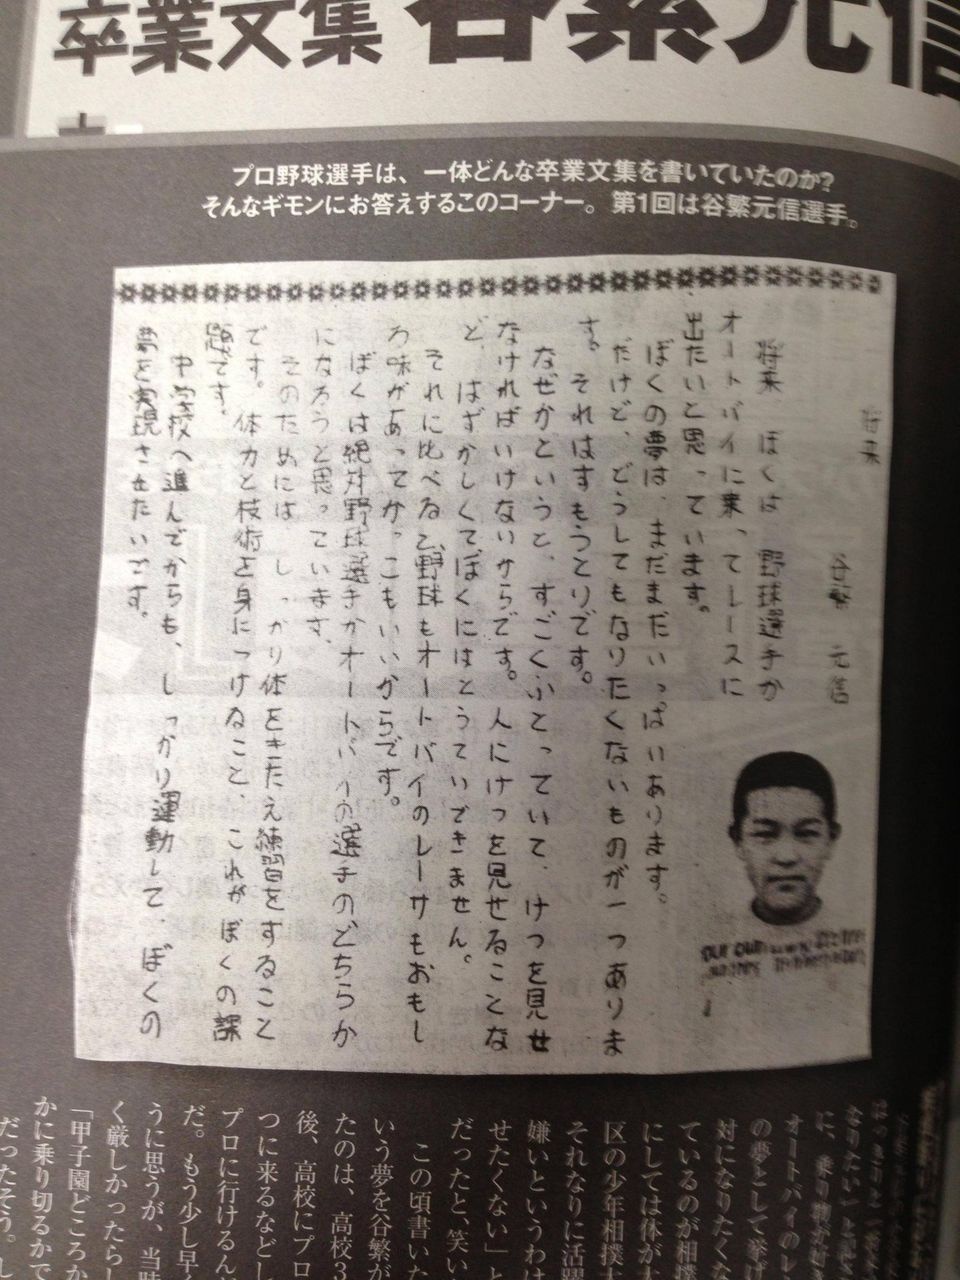 卒業文集 谷繁元信
プロ野球選手は、一体どんな卒業文集を書いていたのか?
そんなギモンにお答えするこのコーナー。第1回は谷繁元信選手。
将来
谷繁 元信
将来 ぼくは 野球選手か
オートバイに乗ってレースに
出たいと思っています。
ぼくの夢は、まだまだいっぱいあります。
だけど、どうしてもなりたくないものが一つありま
す。それはすもうとりです。
なぜかというと、すごくふとっていて、けつを見せ
なければいけないからです。人にけつを見せることな
ど、はずかしくてぼくにはとうていできません。
それに比べると野球もオートバイのレーサもおもし
ろ味があってかっこもいいからです。
ぼくは絶対野球選手かオートバイの選手のどちらか
になろうと思っています。
そのためには しっかり体をきたえ練習をすること
です。体力と技術を身につけること、これがぼくの課
題です。
中学校へ進んでからも、しっかり運動して、ぼくの
夢を実現させたいです。
なりたい」と
オートバイのレ
の夢として挙げ
対になりたくな
ているのが相撲
にしては体が大
区の少年相撲大
それなりに活躍
嫌いというわけ
せたくない」と
だったと、笑い
この頃書いた
いう夢を谷繁が
たのは、高校3
後、高校にプロ
つに来るなどし
プロに行けるんじ
だ。もう少し早く
うに思うが、当時
く厳しかったらし
「甲子園どころか
かに乗り切るかで
だったそう。し